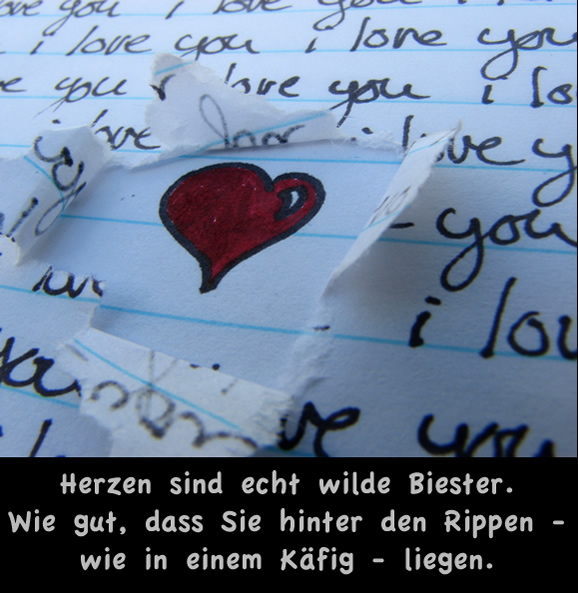 love you i love you
i love you i love you
e you love you i lo
i love i love y
you
i lov
ve you
Herzen sind echt wilde Biester.
Wie gut, dass Sie hinter den Rippen -
wie in einem Käfig - liegen.